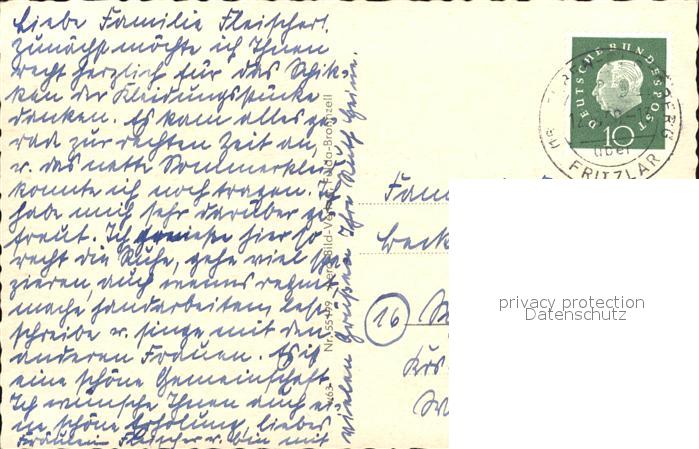 Liebe Familie Fleischer!
Zunächst möchte ich Ihnen
recht herzlich für das Schik-
ken der Kleidungsstücke
danken. Es kam alles ge-
rad zur rechten Zeit an,
u. das nette Sommerkleid
konnte ich noch tragen. Ich
habe mich sehr darüber ge-
freut. Ich genieße hier so
recht die Ruhe, gehe viel spa-
zieren, auch wenns regnet
mache Handarbeiten, lese,
schreibe u. singe mit den
anderen Frauen. Es ist
eine schöne Gemeinschaft.
Ich wünsche Ihnen auch ei-
ne schöne Erholung, liebes
Fräulein Fleischer u. bin mit
vielen Grüßen Ihre Ruth
Nr. 55499
Bild-Verlag, Fulda-Bronnzell
DEUTSCHE BUNDESPOST
10
über
FRITZLAR
16
Krs.
privacy protection
Datenschutz